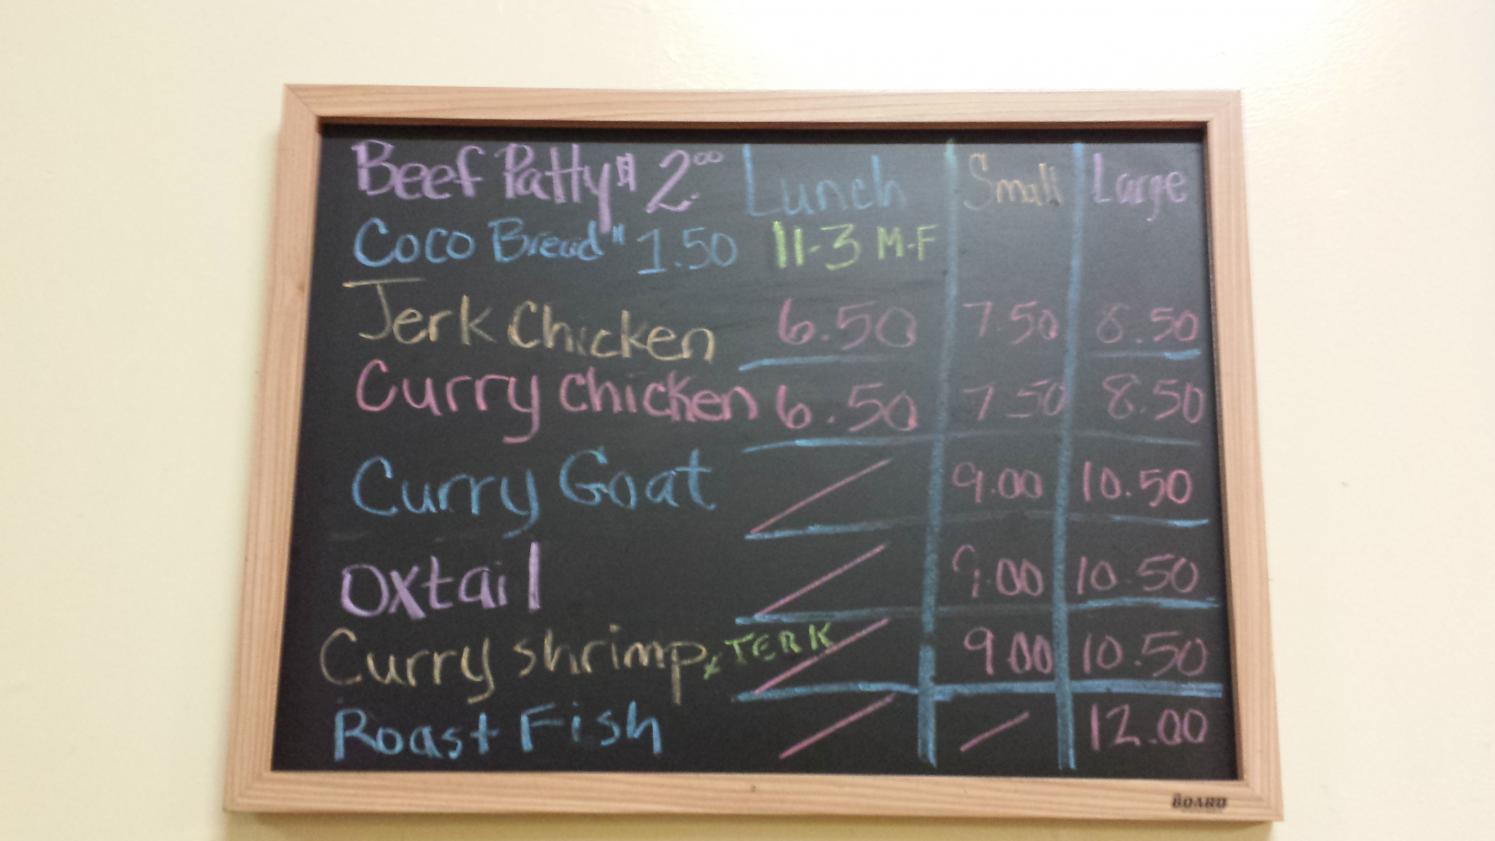 Beef Patty $ 2.00 Lunch Small Large
Coco Bread " 1.50 11-3 M-F
Jerk Chicken 6.50 7.50 8.50
Curry chicken 6.50 7.50 8.50
Curry Goat 9.00 10.50
Oxtail 9.00 10.50
Curry shrimp x JERK 9.00 10.50
Roast Fish 12.00
BOARD